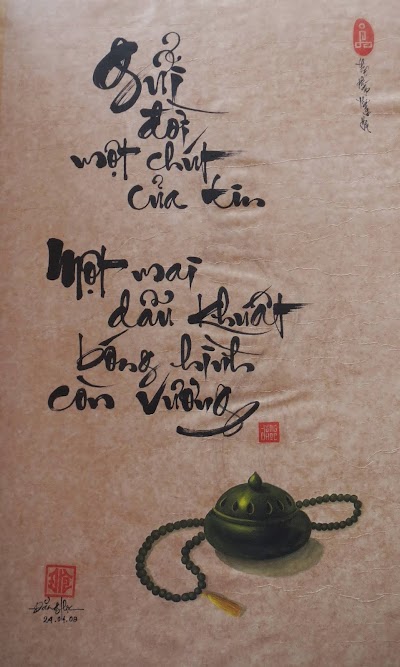 Gửi
đời
một chút
của tin
Một mai
dẫu khuất
bóng hình
còn vương